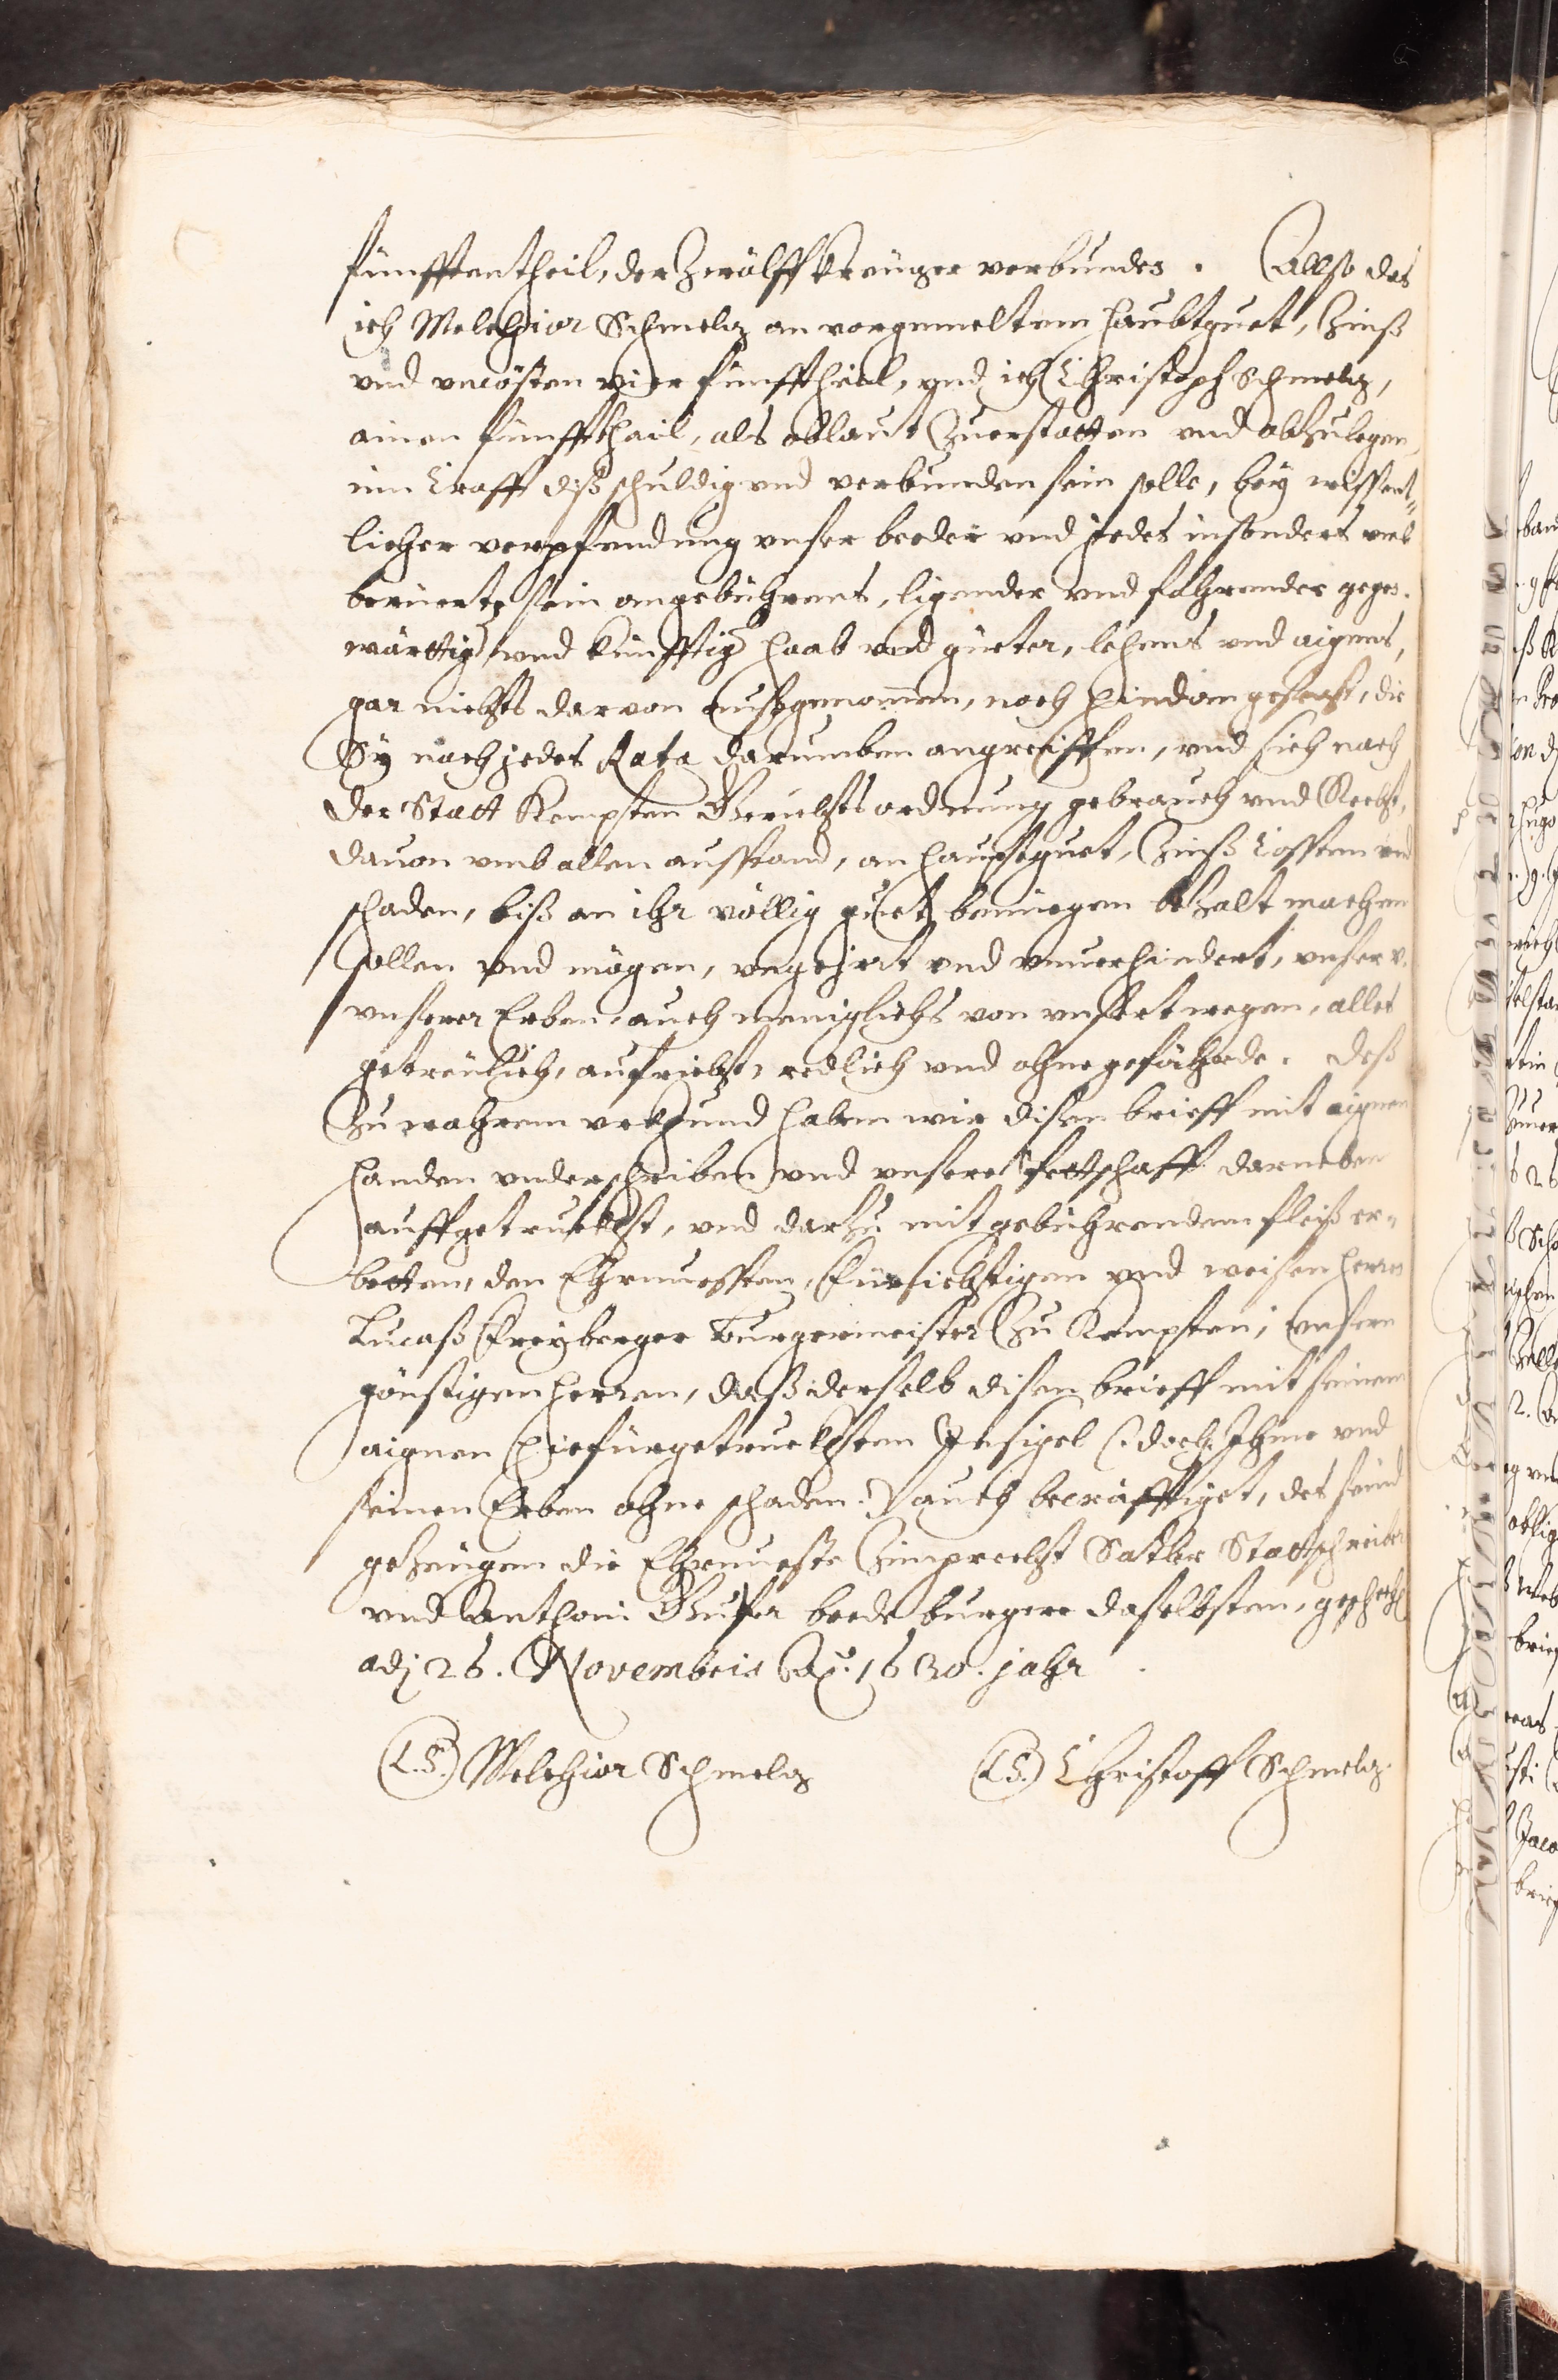 fünfften theil, der Zwölff Kreüzer verbundes. Allso das
ich Melchior Schmelz an vorgemeltem haubtguet, Zinß
vnd vncösten vier fünfftheil, vnd ich Christoph Schmelz,
ainen fünffthail, als oblaut Zuerstatten vnd abzulegen,
inn Crafft diß schuldig vnd verbunden sein solle, bey wissent-
licher verpfendung vnser beeder vnd jedes insonders vmb
berüerte sein angebührnus, ligender vnd fahrender gegen-
wärttig vnd künfftig haab vnd güeter, lehens vnd aigens,
gar nichts darvon außgenommen, noch hindan gesetzt, die
Sy nach jedes Rata darumben angreiffen, vnd sich nach
der Statt Kempten Gerichtsordnung gebrauch vnd Recht,
dauon vmb allen ausstand, an hauptguet, Zinß Cossten vnd
schaden, biß an ihr völlig guet benüegen bezalt machen
sollen vnd mögen, vngejrrt vnd vnuerhindert, vnser v.
vnserer Erben, auch meniglichs von vnsert wegen, alles
getreülich, aufricht, redlich vnd ohne gefährde. Deß
Zu wahrem vrkhund haben wir disen brieff mit aignen
handen vnderschriben vnd vnsere Pettschafft darneben
auffgetruckht, vnd darzu mit gebührendem fleiß er-
betten, den Ehrnuessten, Fürsichtigen vnd weisen herrn
Lucaß Freyberger Burgermeister Zu Kempten, vnsern
günstigen herren, daß derselb disen brieff mit seinem
aignen hiefürgetruckhten Insigel (: doch Ihme vnd
seinen Erben ohne schaden :) auch becräfftiget, des seind
gezeugen die Ehrnueste Zimprecht Sattler Stattschreiber
vnd Anthoni burger beede burgere daselbsten, geschehen
adj 26. Novembris Ao. 1630. jahr
(L.S.) Melchior Schmelz (L.S.) Christoff Schmelz.